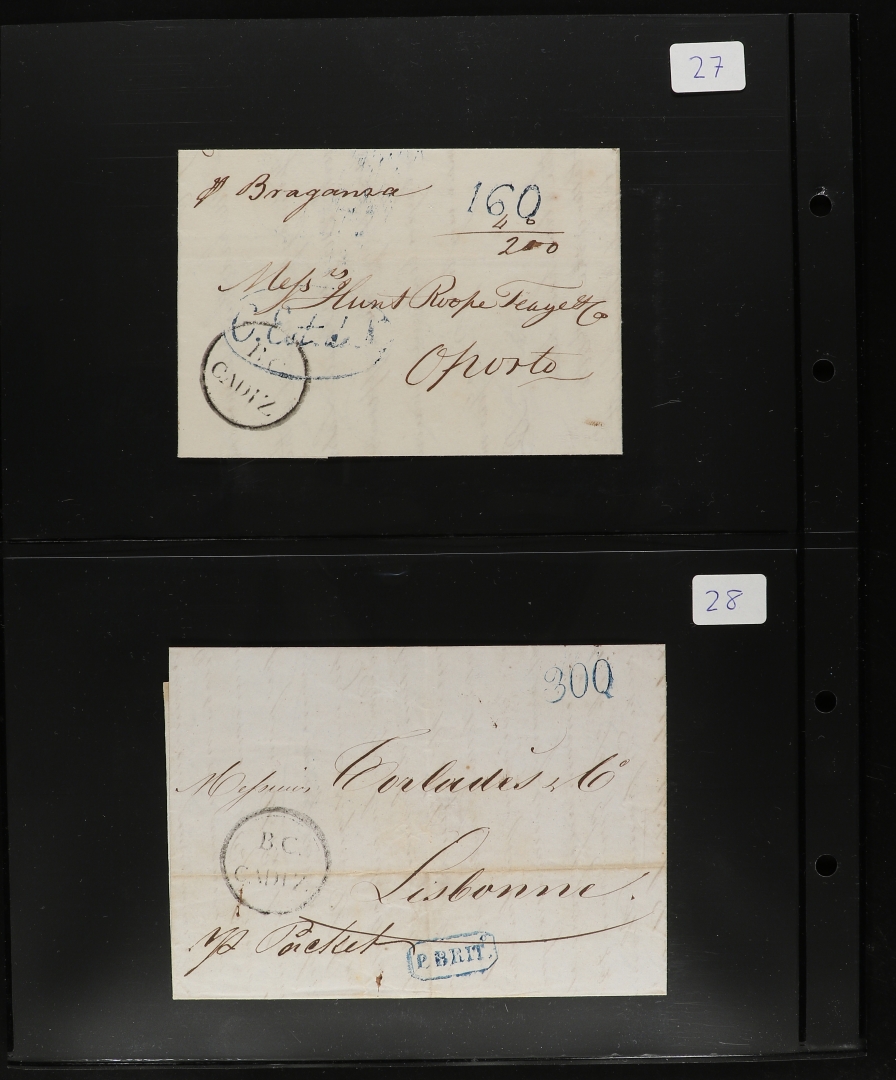 27
p Braganza
160
40
200
Messrs Hunt Roope Teage & Co
B.C.
CADIZ.
Oporto
28
300
Messieurs Torlades & Co
B C.
CADIZ.
Lisbonne.
pr Packet
P. BRIT.